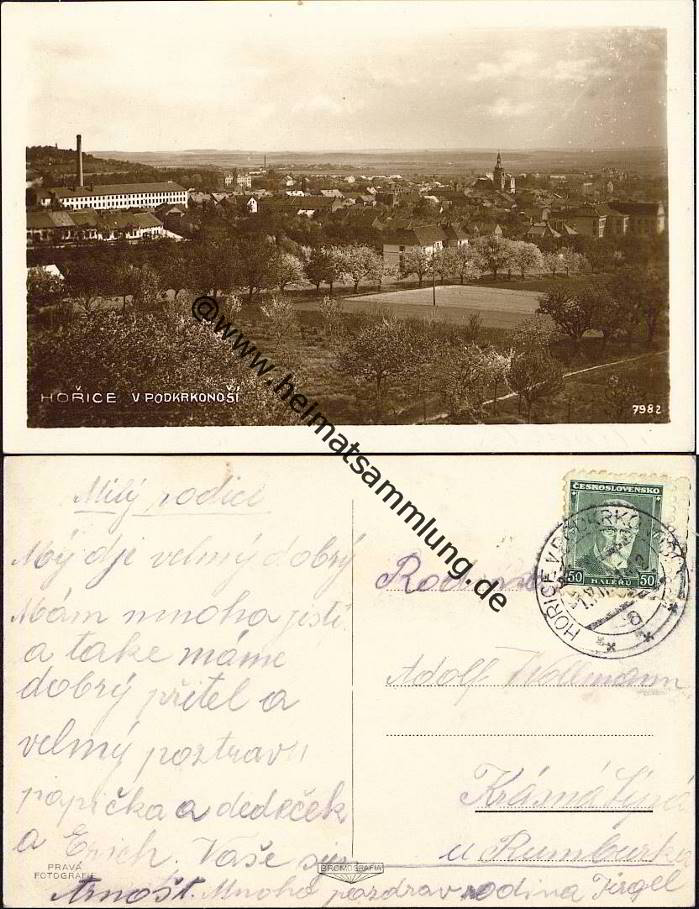 HOŘICE V PODKRKONOŠÍ
7982
©www.heimatsammlung.de
Milý rodiče
Mý dji velmý dobrý
Mám mnoho jisti
a take máme
dobrý přitel a
velmý poztrav
papička a dědeček
a Erich. Vaše syn
Arnošt. Mnoho pozdrav rodina Jirgel
PRAVÁ
FOTOGRAFIE
BROMOGRAFIA
ČESKOSLOVENSKO
50 HALÉŘŮ 50
HOŘICE V PODKRKONOŠÍ
Rodina
Adolf Wollmann
Krásná Lípa
u Rumburka